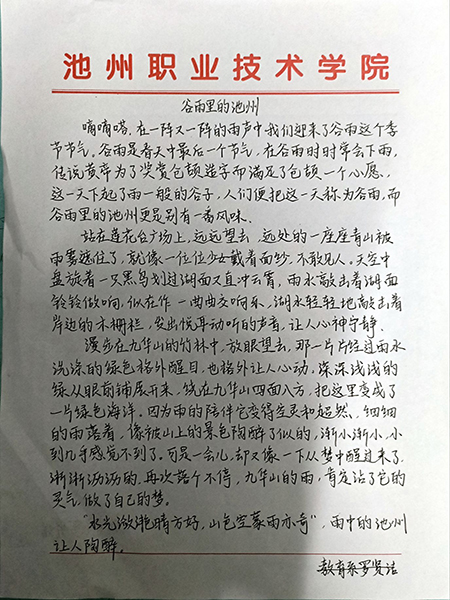 池州职业技术学院
谷雨里的池州
嘀嘀嗒,在一阵又一阵的雨声中我们迎来了谷雨这个季
节节气。谷雨是春天中最后一个节气,在谷雨时时常会下雨,
传说黄帝为了奖赏仓颉造字而满足了仓颉一个心愿,
这一天下起了雨一般的谷子,人们便把这一天称为谷雨,而
谷雨里的池州更是别有一番风味。
站在莲花台广场上,远远望去,远处的一座座青山被
雨雾遮住了,就像一位位少女戴着面纱,不敢见人。天空中
盘旋着一只黑鸟划过湖面又直冲云霄,雨水敲击着湖面
铃铃做响,似在作一曲曲交响乐,湖水轻轻地敲击着
岸边的木栅栏,发出悦耳动听的声音,让人心神宁静。
漫步在九华山的竹林中,放眼望去,那一片片经过雨水
洗涤的绿色格外醒目,也格外让人心动,深深浅浅的
绿从眼前铺展开来,绕在九华山四面八方,把这里变成了
一片绿色海洋。因为雨的陪伴它变得空灵和超然,细细
的雨落着,像被山上的景色陶醉了似的,渐小渐小,小
到几乎感觉不到了。可是一会儿,却又像一下从梦中醒过来了,
淅淅沥沥的,再次落个不停,九华山的雨,肯定沾了它的
灵气,做了自己的梦。
“水光潋滟晴方好,山色空蒙雨亦奇”,雨中的池州
让人陶醉。
教育系罗贤洁